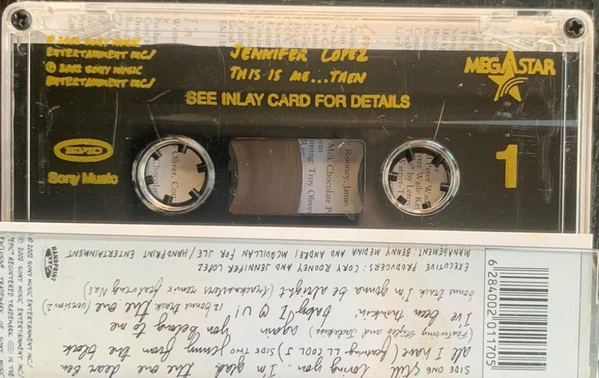 ℗ 2002 SONY MUSIC
ENTERTAINMENT INC./
© 2002 SONY MUSIC
ENTERTAINMENT INC./
JENNIFER LOPEZ
THIS IS ME...THEN
MEGASTAR
SEE INLAY CARD FOR DETAILS
epic
Sony Music
1
Rooney, James
Milk Chocolate P
Troy Oliver
Oliver, Co
6 284002 011705
SIDE ONE Still loving you. I'm glad the one dear Ben
all I have (featuring LL COOL J) SIDE TWO Jenny from the block
(Featuring Styles and Jadakiss) again you belong to me
I've been thinkin' baby I ♡ U! 12 bonus track the one (version 2)
bonus track I'm gonna be alright (trackmasters remix featuring Nas)
EXECUTIVE PRODUCERS: CORY ROONEY AND JENNIFER LOPEZ
MANAGEMENT: BENNY MEDINA AND ANDREI MCQUILLAN FOR JLE/HANDPRINT ENTERTAINMENT
HANDPRINT
epic
℗ 2002 SONY MUSIC ENTERTAINMENT INC./
© 2002 SONY MUSIC ENTERTAINMENT INC./
"EPIC" REGISTERED TRADEMARK
IS THE
EXCLUSIVE TRADEMARK OF